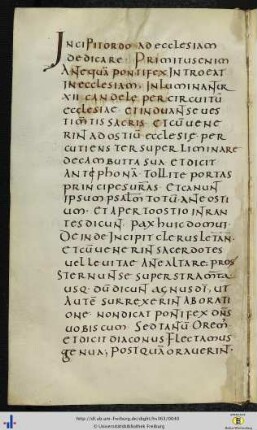 Incipit ordo ad ecclesiam
dedicare. Primitus enim
antequā pontifex introeat
in ecclesiam. Inluminantur
xii candele per circuitū
ecclesiae et induan se ves
timentis sacris. et cū vene
rin ad ostiū ecclesie per
cutiens ter superliminare
de cambutta sua et dicit
antephonā. Tollite portas
principes uras. et canun
ipsum psalm totū ante osti
um. et aperto ostio intran
tes dicun. pax huic domui.
Deinde incipit clerus letan.
et cū vene rin sacerdotes
vel levitae ante altare. pros
ternun se super stramta
usq. dū dicun agnus di. ut
autē surrexerin ab orati
one non dicat pontifex dns
vobiscum. Sed tantū Orem
et dicit diaconus flectamus
genua; Post quā oraverin.
http://dl.ub.uni-freiburg.de/diglit/hs363/0040
© Universitätsbibliothek Freiburg